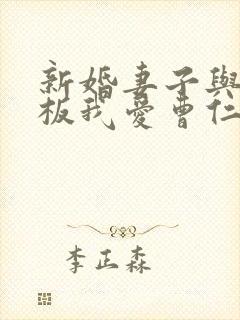 新婚妻子與
板我愛曹仁
李正森